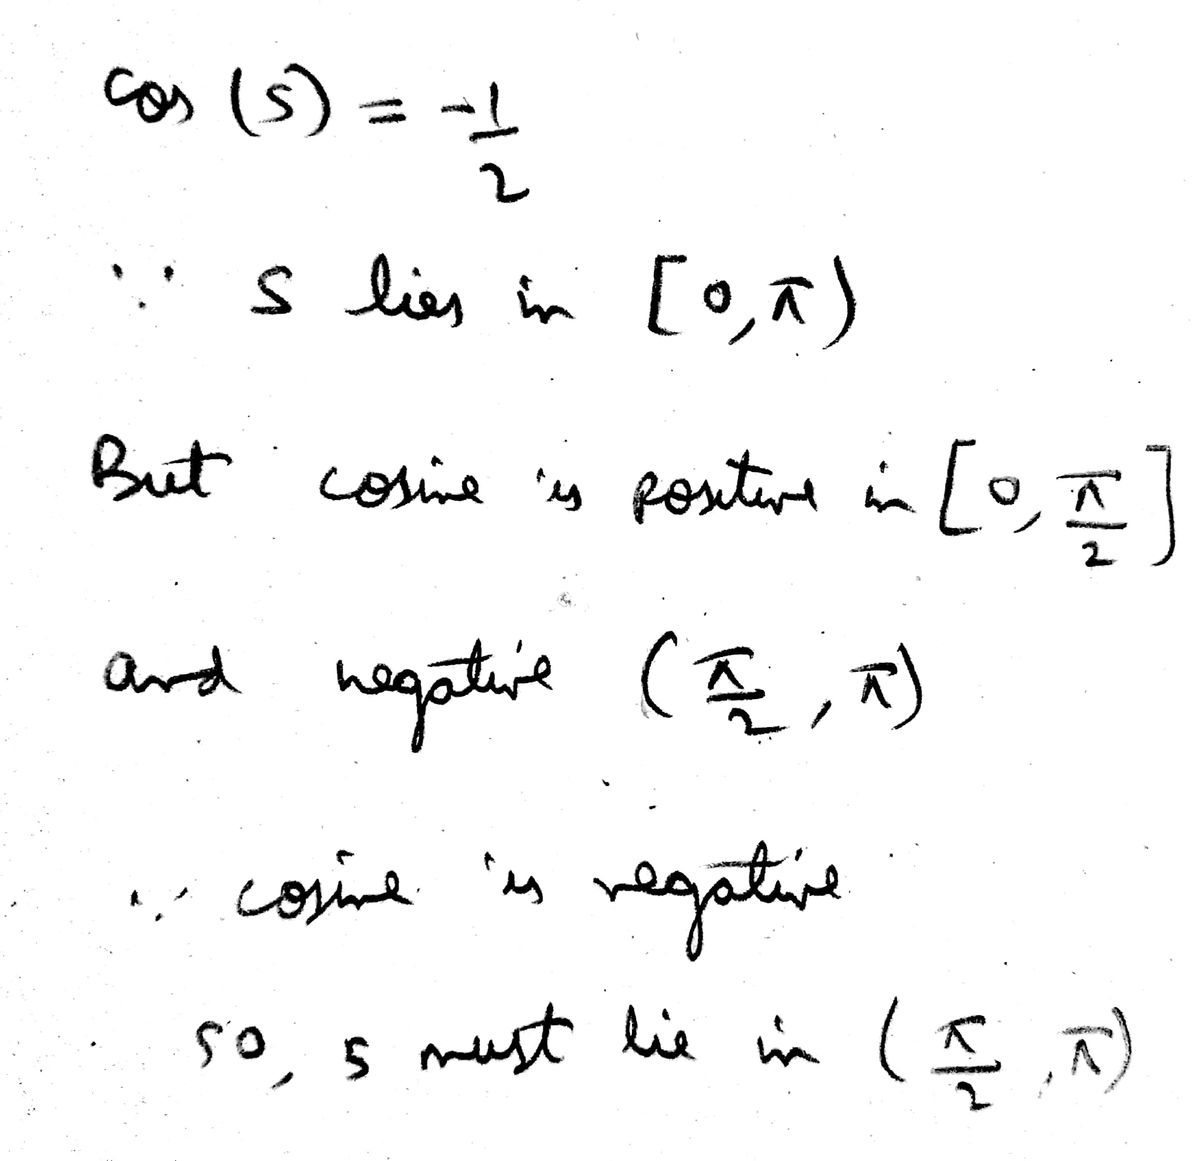 cos (s) = -1/2
∵ s lies in [0, π)
But cosine is positive in [0, π/2]
and negative (π/2, π)
∵ cosine is negative
so, s must lie in (π/2, π)